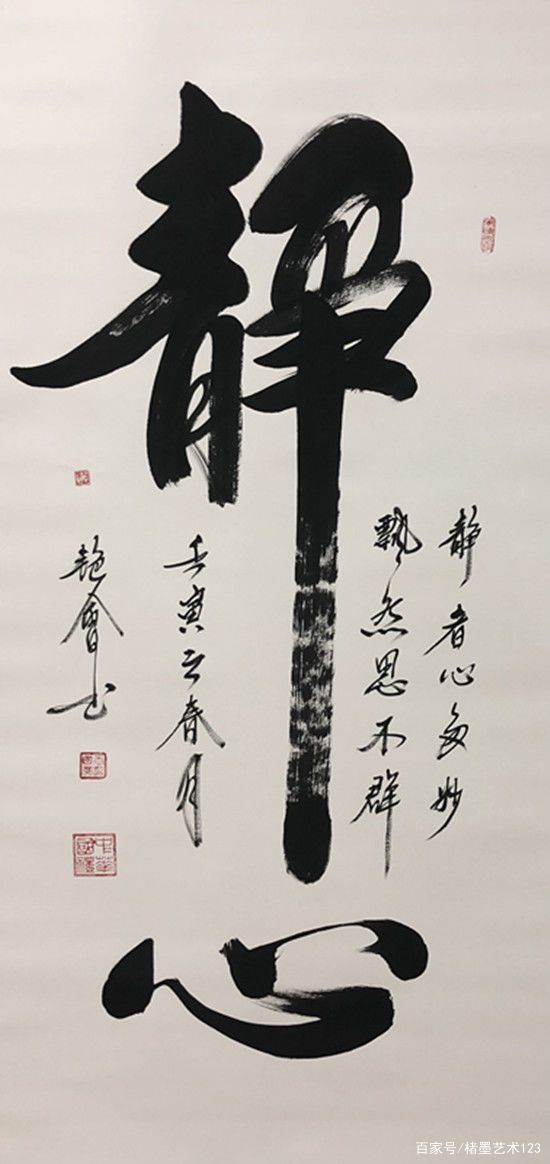 靜心
静者心多妙
飘然思不群
壬寅之春月
艳會书
百家号/楮墨艺术123